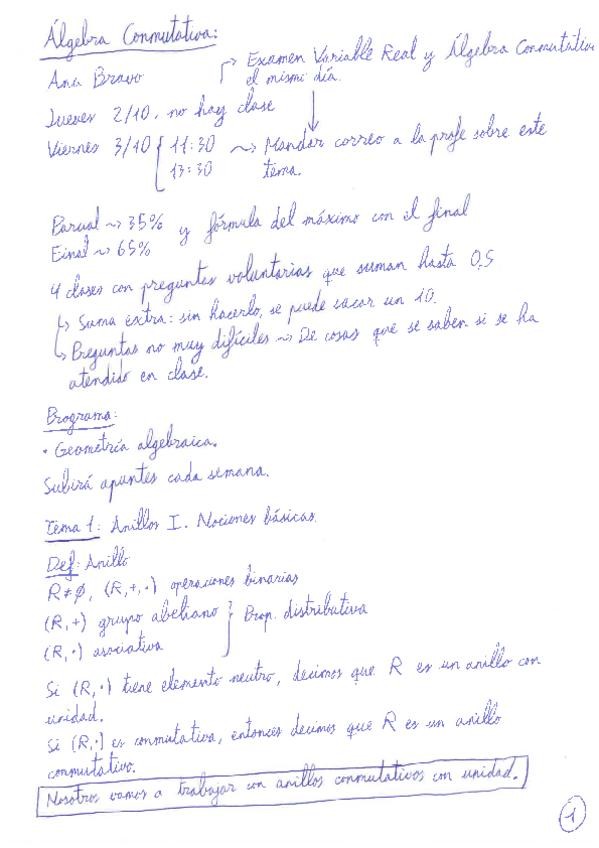 Álgebra Conmutativa:
Ana Bravo
Examen Variable Real y Álgebra Conmutativa
el mismo día.
Jueves 2/10, no hay clase
Viernes 3/10 { 11:30 ~> Mandar correo a la profe sobre este
13:30 tema.
Parcial ~> 35% y fórmula del máximo con el final
Final ~> 65%
4 clases con preguntas voluntarias que suman hasta 0,5
↳ Suma extra: sin hacerlo, se puede sacar un 10.
↳ Preguntas no muy difíciles ~> De cosas que se saben si se ha
atendido en clase.
Programa:
· Geometría algebraica.
Subirá apuntes cada semana.
Tema 1: Anillos I. Nociones básicas.
Def: Anillo
R≠∅, (R,+,·) operaciones binarias
(R,+) grupo abeliano } Prop. distributiva
(R,·) asociativa
Si (R,·) tiene elemento neutro, decimos que R es un anillo con
unidad.
Si (R,·) es conmutativa, entonces decimos que R es un anillo
conmutativo.
Nosotros vamos a trabajar con anillos conmutativos con unidad.
1